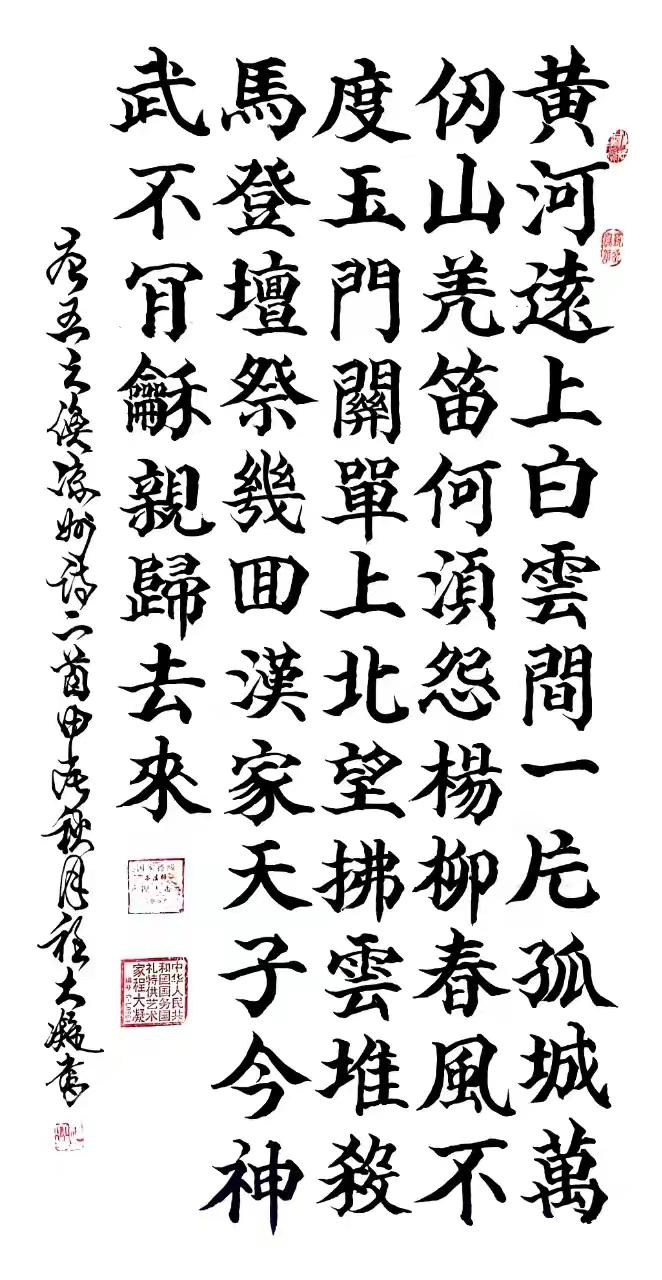 黄河遠上白雲間一片孤城萬
仞山羌笛何須怨楊柳春風不
度玉門關單上北望拂雲堆殺
馬登壇祭幾回漢家天子今神
武不肎龢親歸去來
唐王之渙凉州詩二首甲辰秋月程大凝書
中华人民共
和国国务国
礼特供艺术
家程大凝